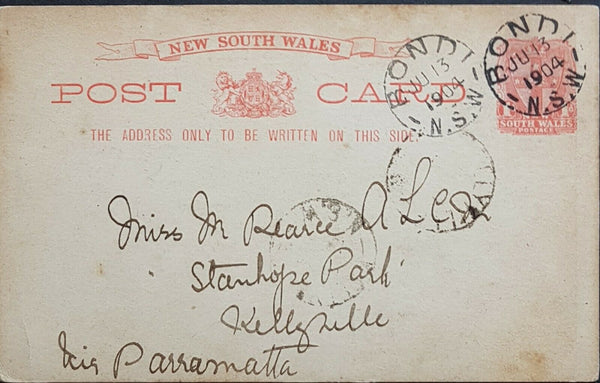 NEW SOUTH WALES
POST CARD
THE ADDRESS ONLY TO BE WRITTEN ON THIS SIDE
BONDI
JU 13
1904
N.S.W
BONDI
JU 13
1904
N.S.W
SOUTH WALES
POSTAGE
Miss M Pearce A L C M
Stanhope Park
Kellyville
Via Parramatta